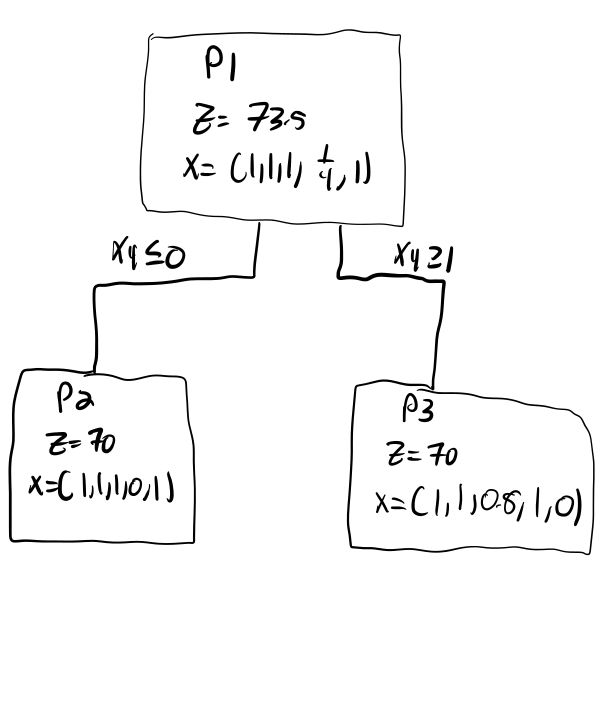 P1
Z= 73.5
X= (1,1,1, 1/4, 1)
X4≤0
X4≥1
P2
Z=70
X=(1,1,1,0,1)
P3
Z=70
X=(1,1,0.8,1,0)